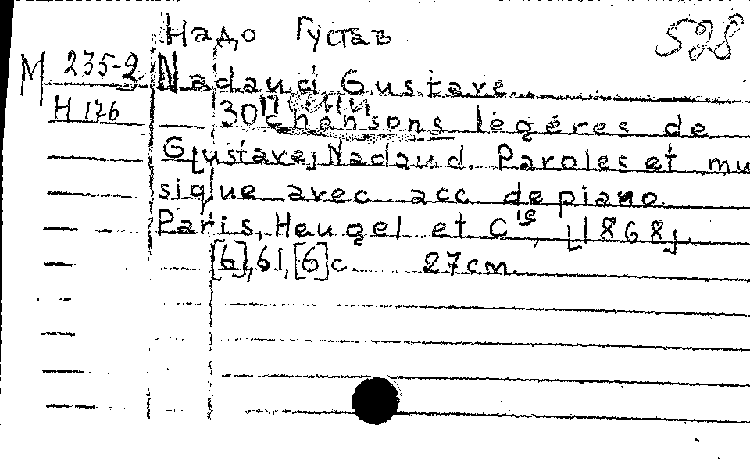 Надо Густав
528
М 235-2
Н 176
Nadaud Gustave.
30 Chansons légères de
G[ustave] Nadaud. Paroles et mu
sique avec acc de piano.
Paris, Heugel et Cie, [1868].
[6], 61, [6] c. 27 cm.